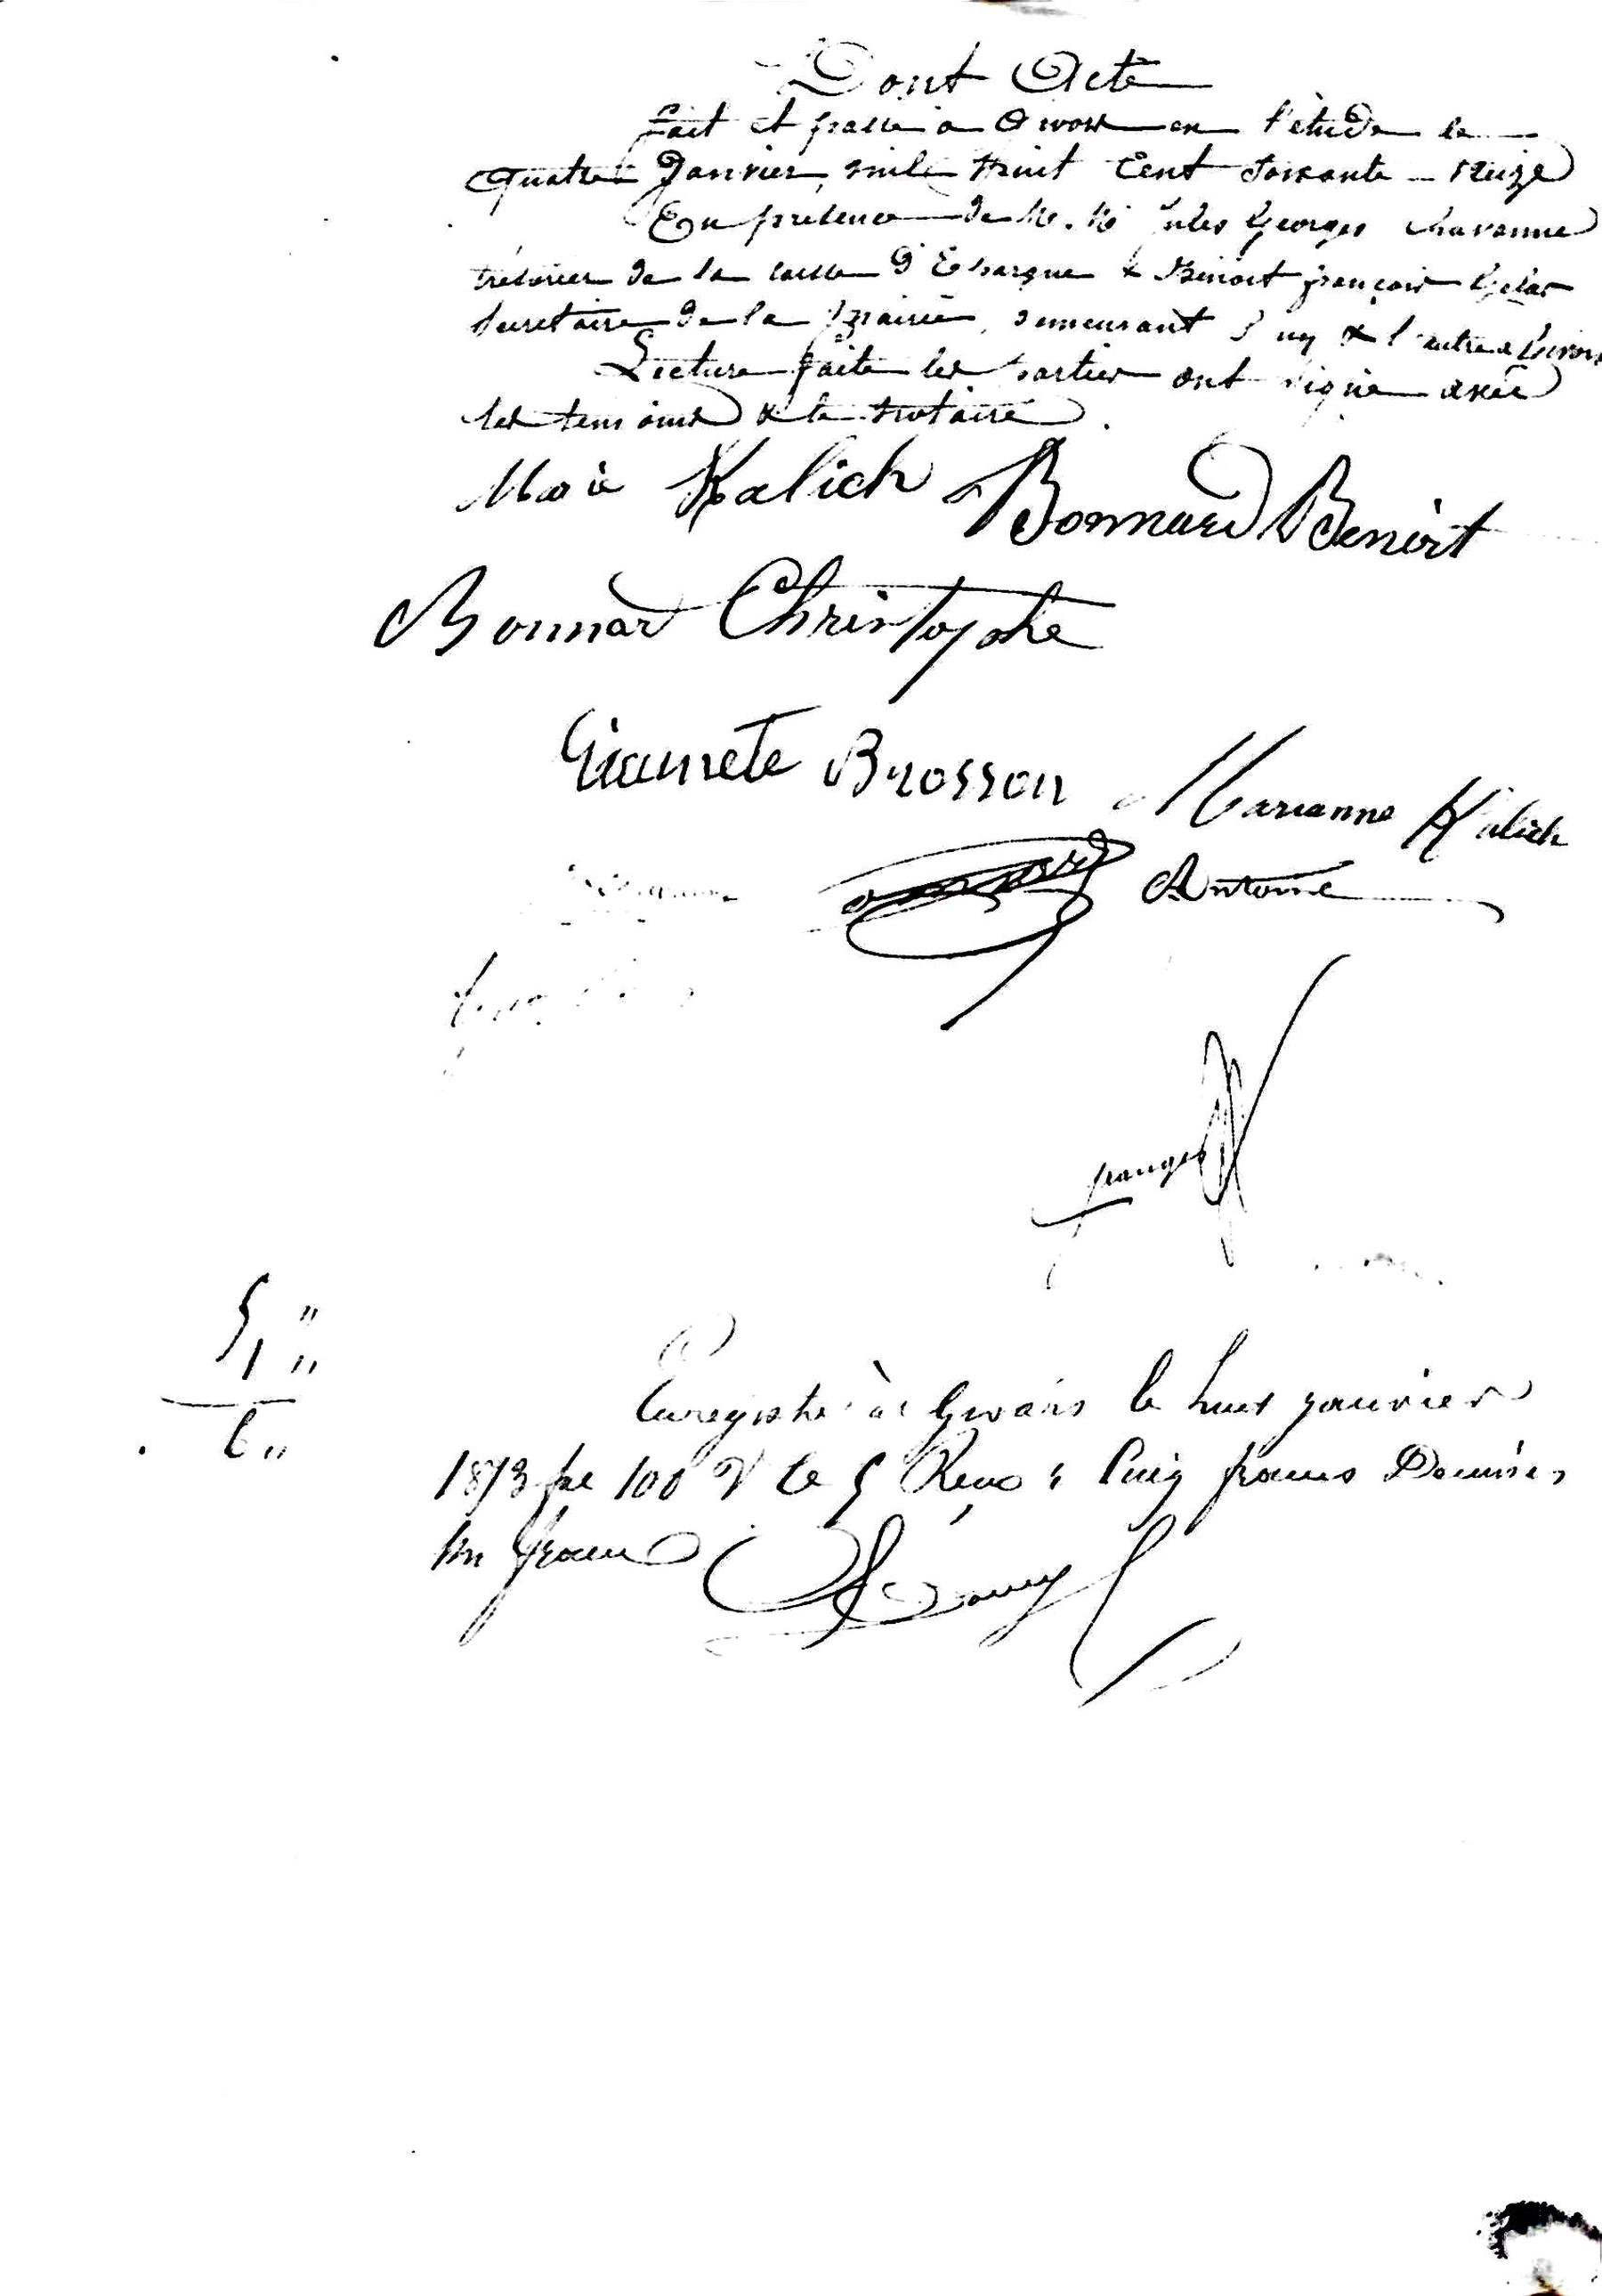 Dont Acte
Fait et passé à Givors en l'étude le
Quatre Janvier, mil huit Cent soixante-treize
En présence de M. M Jules Georges Chavanne
trésorier de la caisse d'Epargne & Benoit françois
secretaire de la Mairie, demeurant l'un & l'autre à Givors
Lecture faite les parties ont signé avec
les temoins & le notaire.
Marie Kalich Bonnard Benoit
Bonnar Christophe
Brosson Marianne Kalich
Antoine
5 "
1 "
6 "
Enregistré à Givors le huit janvier
1873 100 V Ce 5 Reçu : Cinq francs Décimes
un franc